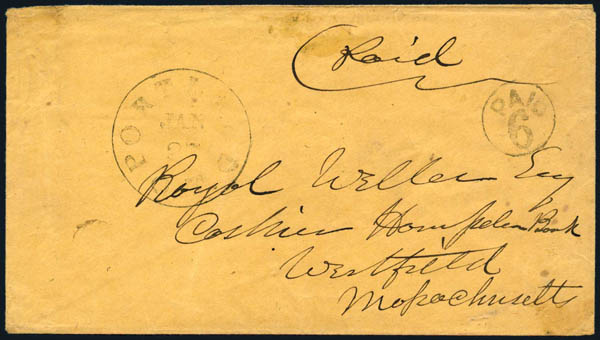 Paid
PORTLAND
JAN
PAID
6
Royal Weller Esq
Cashier Hampden Bank
Westfield
Massachusetts